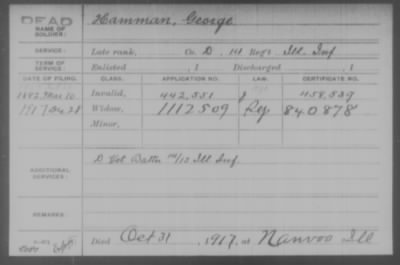 DEAD
NAME OF SOLDIER: Hamman, George
SERVICE: Late rank, Co. D, 151 Reg't Ill. Inf
TERM OF SERVICE: Enlisted , 1 Discharged , 1
DATE OF FILING. CLASS. APPLICATION NO. LAW. CERTIFICATE NO.
1882, Mar. 10. Invalid, 442,551 458,539
1917 Dec 28 Widow, 1112509 Rep 840878
Minor,
ADDITIONAL SERVICES: D Vet Battn 10/15 Ill Inf.
REMARKS:
Died Oct 31, 1917, at Nauvoo Ill